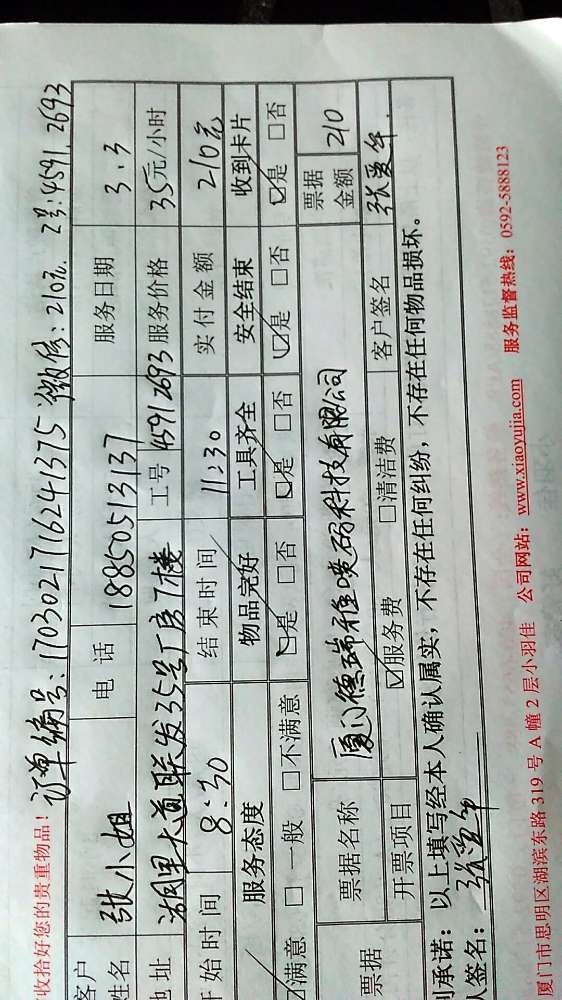 收拾好您的贵重物品！ 订单编号：1703021716241375 微信：210元. 2号：4591, 2693
客户姓名 张小姐 电话 18850513137 服务日期 3.3
地址 湖里大道联发35号厂房7楼 工号 4591 2693 服务价格 35元/小时
开始时间 8:30 结束时间 11:30 实付金额 210元
服务态度 物品完好 工具齐全 安全结束 收到卡片
☑满意 □一般 □不满意 ☑是 □否 ☑是 □否 ☑是 □否 ☑是 □否
票据 票据名称 厦门德瑞雅喷码科技有限公司 票据金额 210
开票项目 ☑服务费 □清洁费 客户签名
承诺：以上填写经本人确认属实，不存在任何纠纷，不存在任何物品损坏。
人签名：
厦门市思明区湖滨东路 319 号 A 幢 2 层小羽佳 公司网站：www.xiaoyujia.com 服务监督热线：0592-5888123